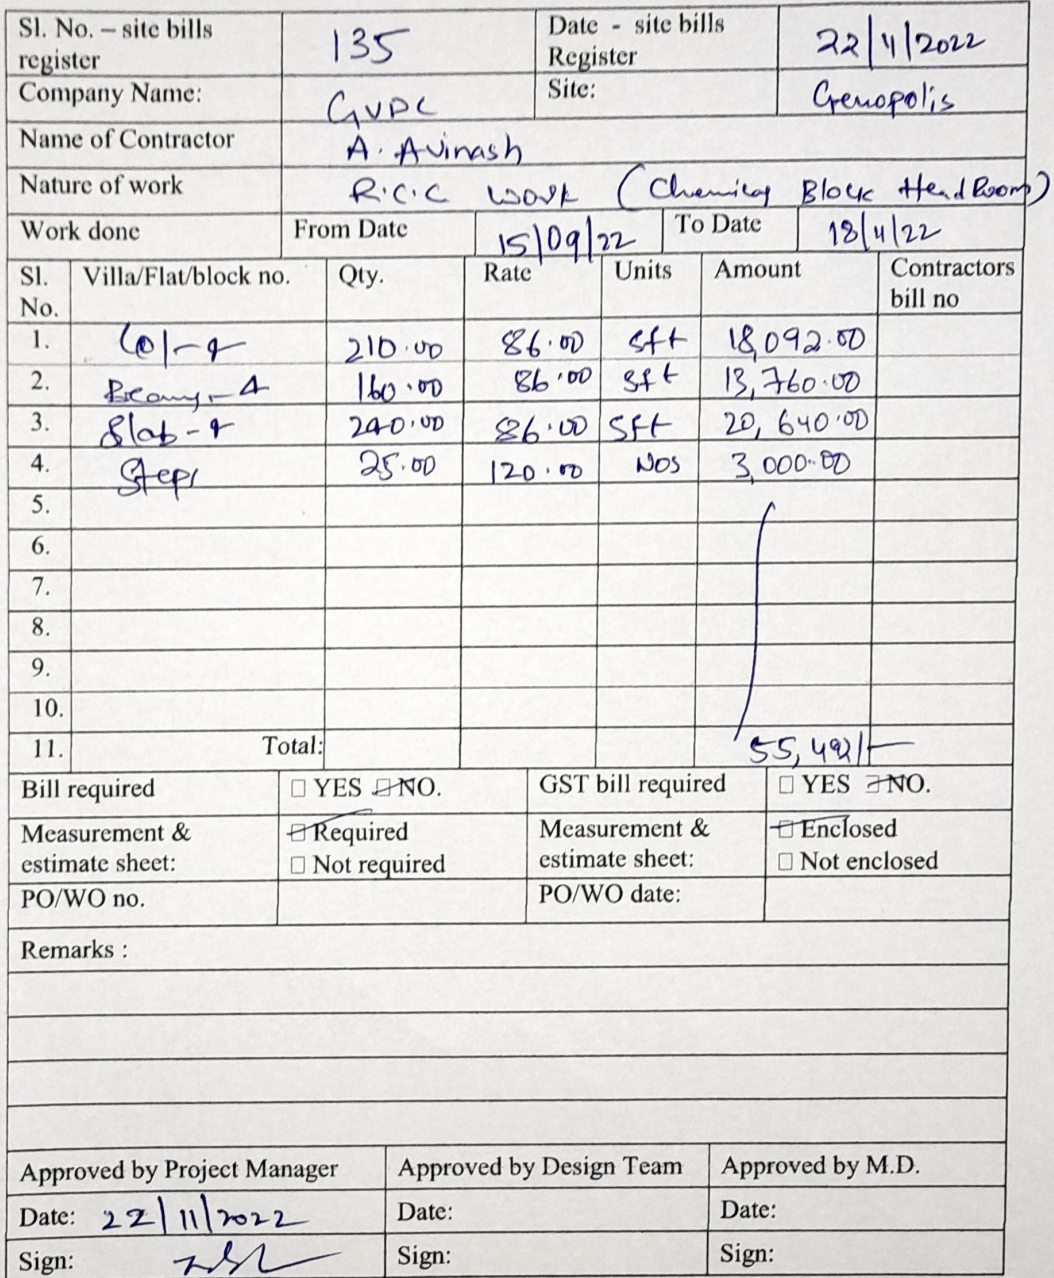 Sl. No. – site bills register 135 Date - site bills Register 22/11/2022
Company Name: GVDC Site: Genopolis
Name of Contractor A. Avinash
Nature of work R.C.C work (Chemical Block Head Room)
Work done From Date 15/09/22 To Date 18/11/22
Sl. No. Villa/Flat/block no. Qty. Rate Units Amount Contractors bill no
1. Col-4 210.00 86.00 sft 18,092.00
2. Beams-4 160.00 86.00 sft 13,760.00
3. Slab-4 240.00 86.00 Sft 20,640.00
4. Steps 25.00 120.00 Nos 3,000.00
5.
6.
7.
8.
9.
10.
11. Total: 55,492/-
Bill required □ YES □ NO. GST bill required □ YES □ NO.
Measurement & estimate sheet: □ Required Measurement & estimate sheet: □ Enclosed
□ Not required □ Not enclosed
PO/WO no. PO/WO date:
Remarks :
Approved by Project Manager Approved by Design Team Approved by M.D.
Date: 22/11/2022 Date: Date:
Sign: Sign: Sign: